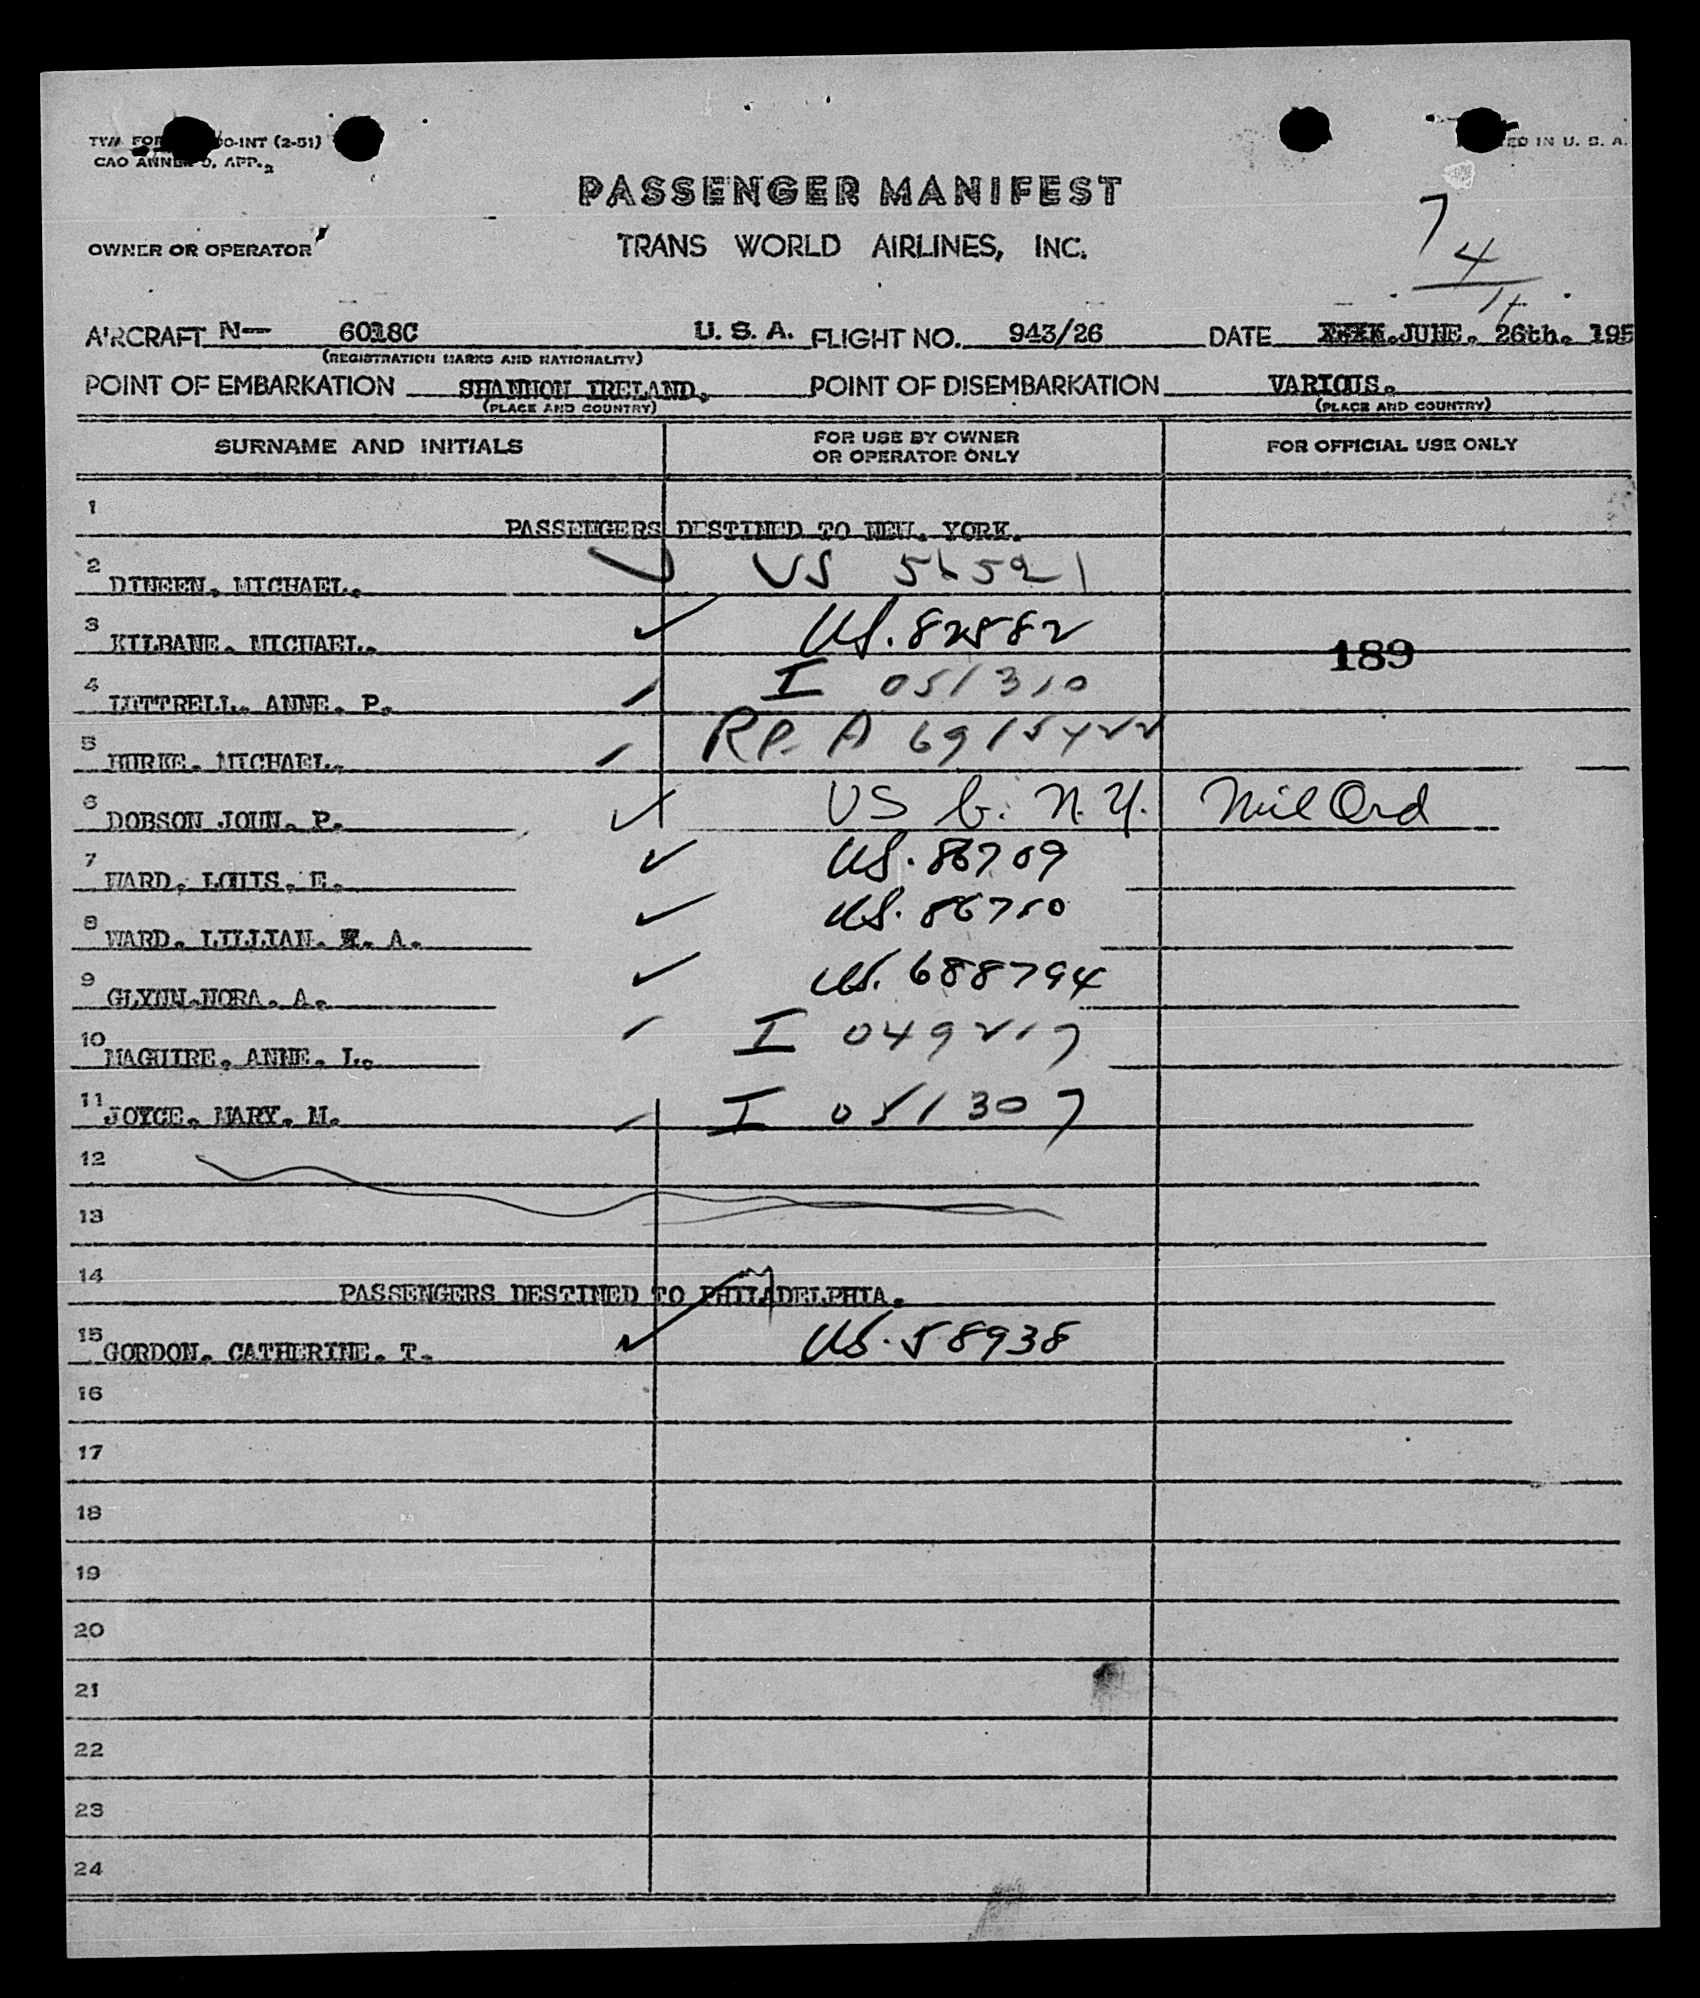 CAO ANNEX 9, APP. 2
PASSENGER MANIFEST
OWNER OR OPERATOR TRANS WORLD AIRLINES, INC.
7
4
AIRCRAFT N— 6018C U. S. A. FLIGHT NO. 943/26 DATE JUNE. 26th. 195
(REGISTRATION MARKS AND NATIONALITY)
POINT OF EMBARKATION SHANNON IRELAND. POINT OF DISEMBARKATION VARIOUS.
(PLACE AND COUNTRY) (PLACE AND COUNTRY)
SURNAME AND INITIALS FOR USE BY OWNER OR OPERATOR ONLY FOR OFFICIAL USE ONLY
1 PASSENGERS DESTINED TO NEW. YORK.
2 DINEEN. MICHAEL. US
3 KILBANE. MICHAEL. US. 82582
189
4 LUTTRELL. ANNE. P. I 051310
5 MICHAEL. RP. A
6 DOBSON JOHN. P. US N.Y. Mil Ord
7 WARD. LOUIS. E. US. 86709
8 WARD. LILLIAN. A. US. 86710
9 GLYNN.NORA. A. US. 688794
10 MAGUIRE. ANNE. L. I 049217
11 JOYCE. MARY. M. I 051307
12
13
14 PASSENGERS DESTINED TO PHILADELPHIA.
15 GORDON. CATHERINE. T. US. 58938
16
17
18
19
20
21
22
23
24